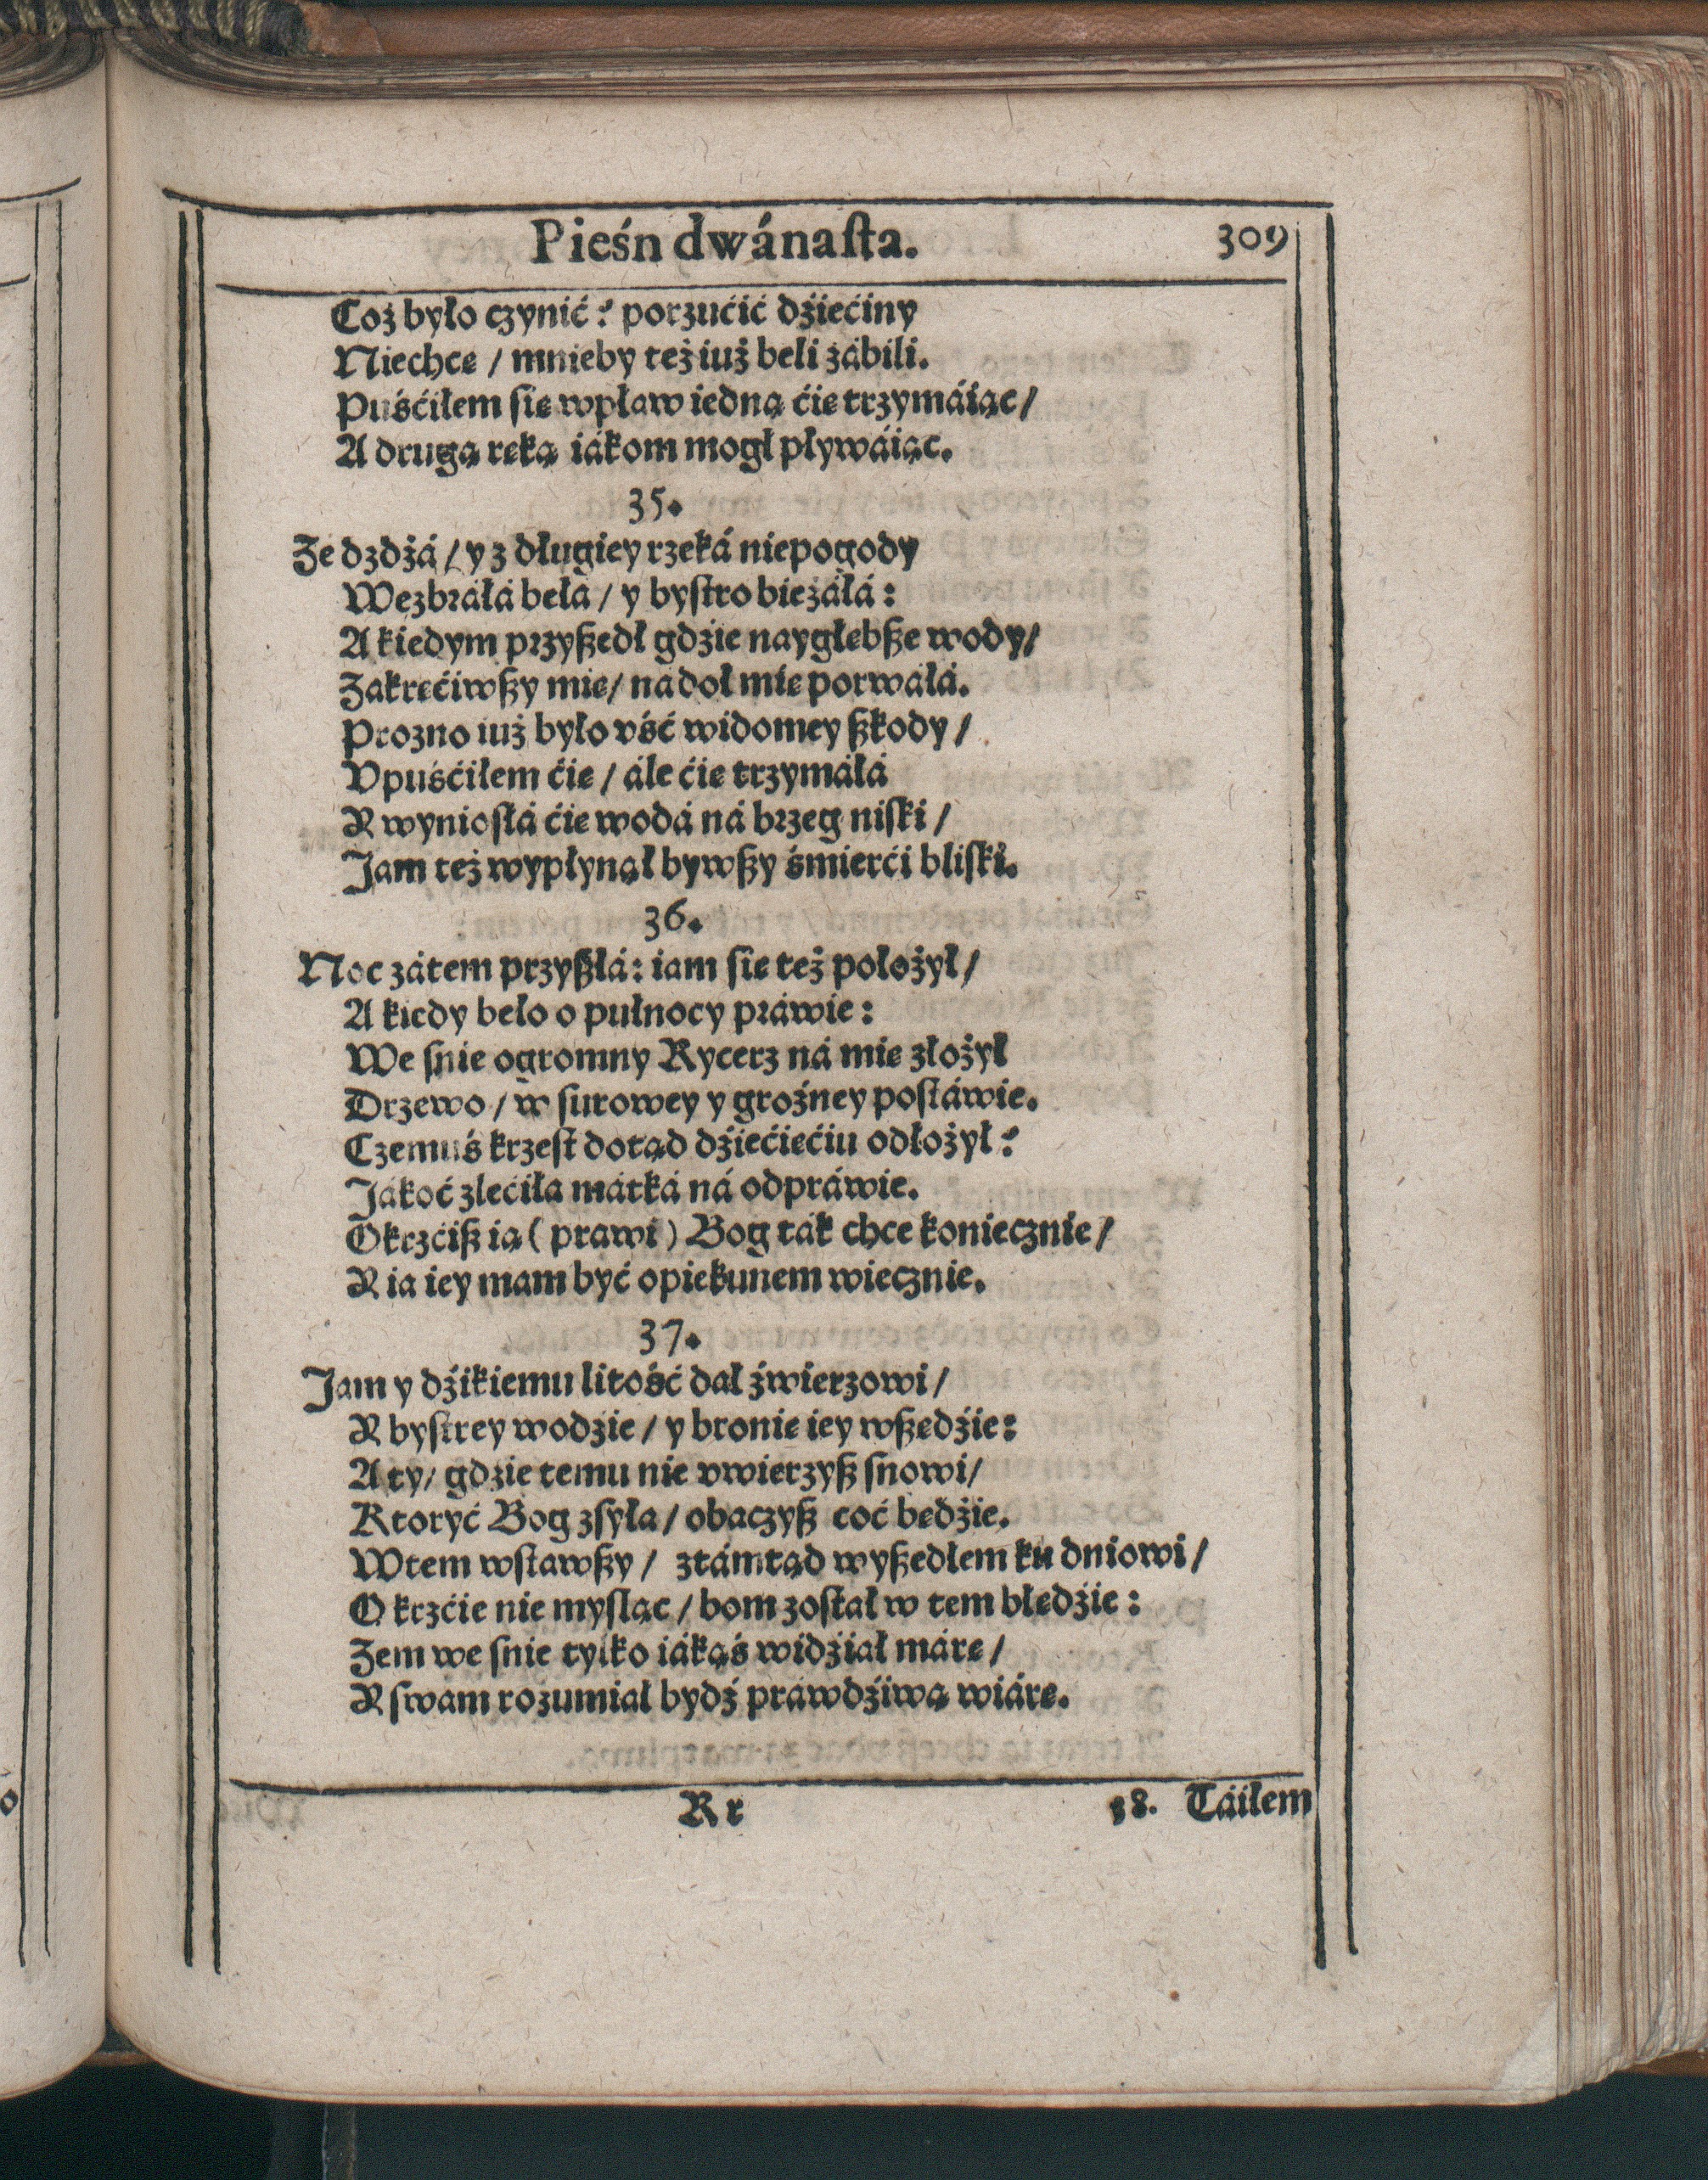 Pieśń dwánaſta. 309
Coż było czynić? porzućić dźiećiny
Niechce / mnieby też iuż beli zábili.
Puśćiłem ſie wpław iedną ćie trzymáiąc /
A drugą ręką iákom mogł pływáiąc.
35.
Ze dżdżá / y z długiey rzeká niepogody
Wezbráłá bełá / y byſtro bieżáłá:
A kiedym przyßedł gdzie naygłebße wody /
Zakręćiwßy mie / ná doł mie porwáłá.
Prozno iuż było vść widomey ßkody /
Vpuśćiłem ćie / ále ćie trzymáłá
Y wynioſłá ćie wodá ná brzeg niſki /
Jam też wypłynął bywßy śmierći bliſki.
36.
Noc zátem przyßłá: iam ſie też położył /
A kiedy beło o pułnocy práwie:
We ſnie ogromny Rycerz ná mie złożył
Drzewo / w ſurowey y groźney poſtáwie.
Czemuś krzeſt dotąd dźiećięćiu odłożył?
Jákoć zlećiłá mátká ná odpráwie.
Okrzćiß ią ( prawi ) Bog ták chce koniecznie /
Y ia iey mam być opiekunem wiecznie.
37.
Jam y dźikiemu litość dał źwierzowi /
Y byſtrey wodzie / y bronię iey wßędźie:
A ty / gdzie temu nie vwierzyß ſnowi /
Ktoryć Bog zſyła / obaczyß coć będźie.
Wtem wſtawßy / ztámtąd wyßedłem ku dniowi /
O krzćie nie myſląc / bom zoſtał w tem błędźie:
Zem we ſnie tylko iákąś widźiał márę /
Y ſwam rozumiał bydź prawdźiwą wiárę.
Rr 38. Táiłem